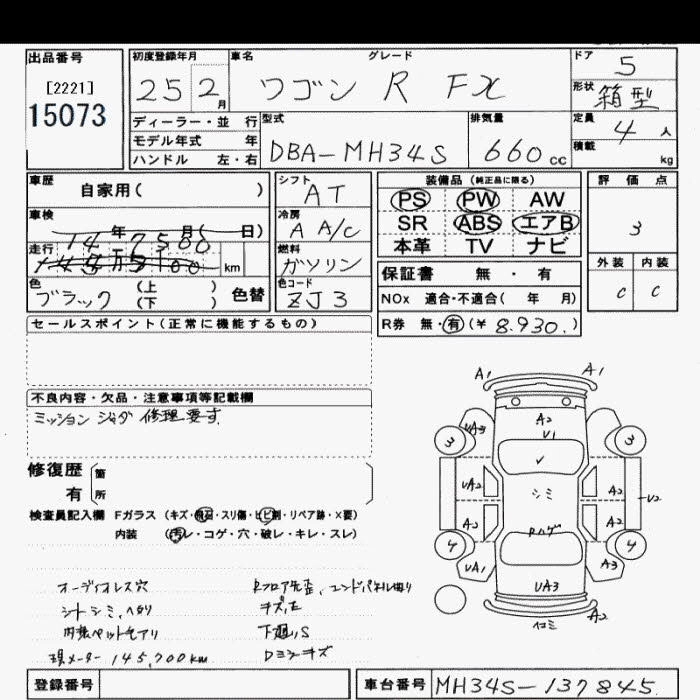 出品番号
[2221]
15073
初度登録年月
25 2 月
車名 グレード
ワゴン R FX
ドア 5
形状 箱型
ディーラー・並行
モデル年式 年
ハンドル 左・右
型式
DBA-MH34S
排気量
660 cc
定員 4 人
積載 kg
車歴 自家用( )
車検 年 月( 日)
走行 147500 km
色 ブラック (上)(下) 色替
シフト AT
冷房 A A/C
燃料 ガソリン
色コード ZJ3
装備品 (純正品に限る)
PS PW AW
SR ABS エアB
本革 TV ナビ
保証書 無・有
NOx 適合・不適合( 年 月)
R券 無・有(¥ 8,930.)
評価点
3
外装 内装
C C
セールスポイント(正常に機能するもの)
不良内容・欠品・注意事項等記載欄
ミッション ジャダ 修理要す
修復歴 箇
有 所
検査員記入欄 Fガラス (キズ・飛石・スリ傷・ヒビ割・リペア跡・×要)
内装 (汚レ・コゲ・穴・破レ・キレ・スレ)
オーディオレス穴
シートシミ、ヘタリ
内装ペットモアリ
現メーター 145,700km
キズ、E
下廻りS
Dミラーキズ
A1 A1
A2
V1
UA3
3 3
✓
UA2 シミ A2 U2
A2 Rハゲ A2
4 4
UA1 A3
UA3
A2
ヨコミ
登録番号
車台番号 MH34S-137845